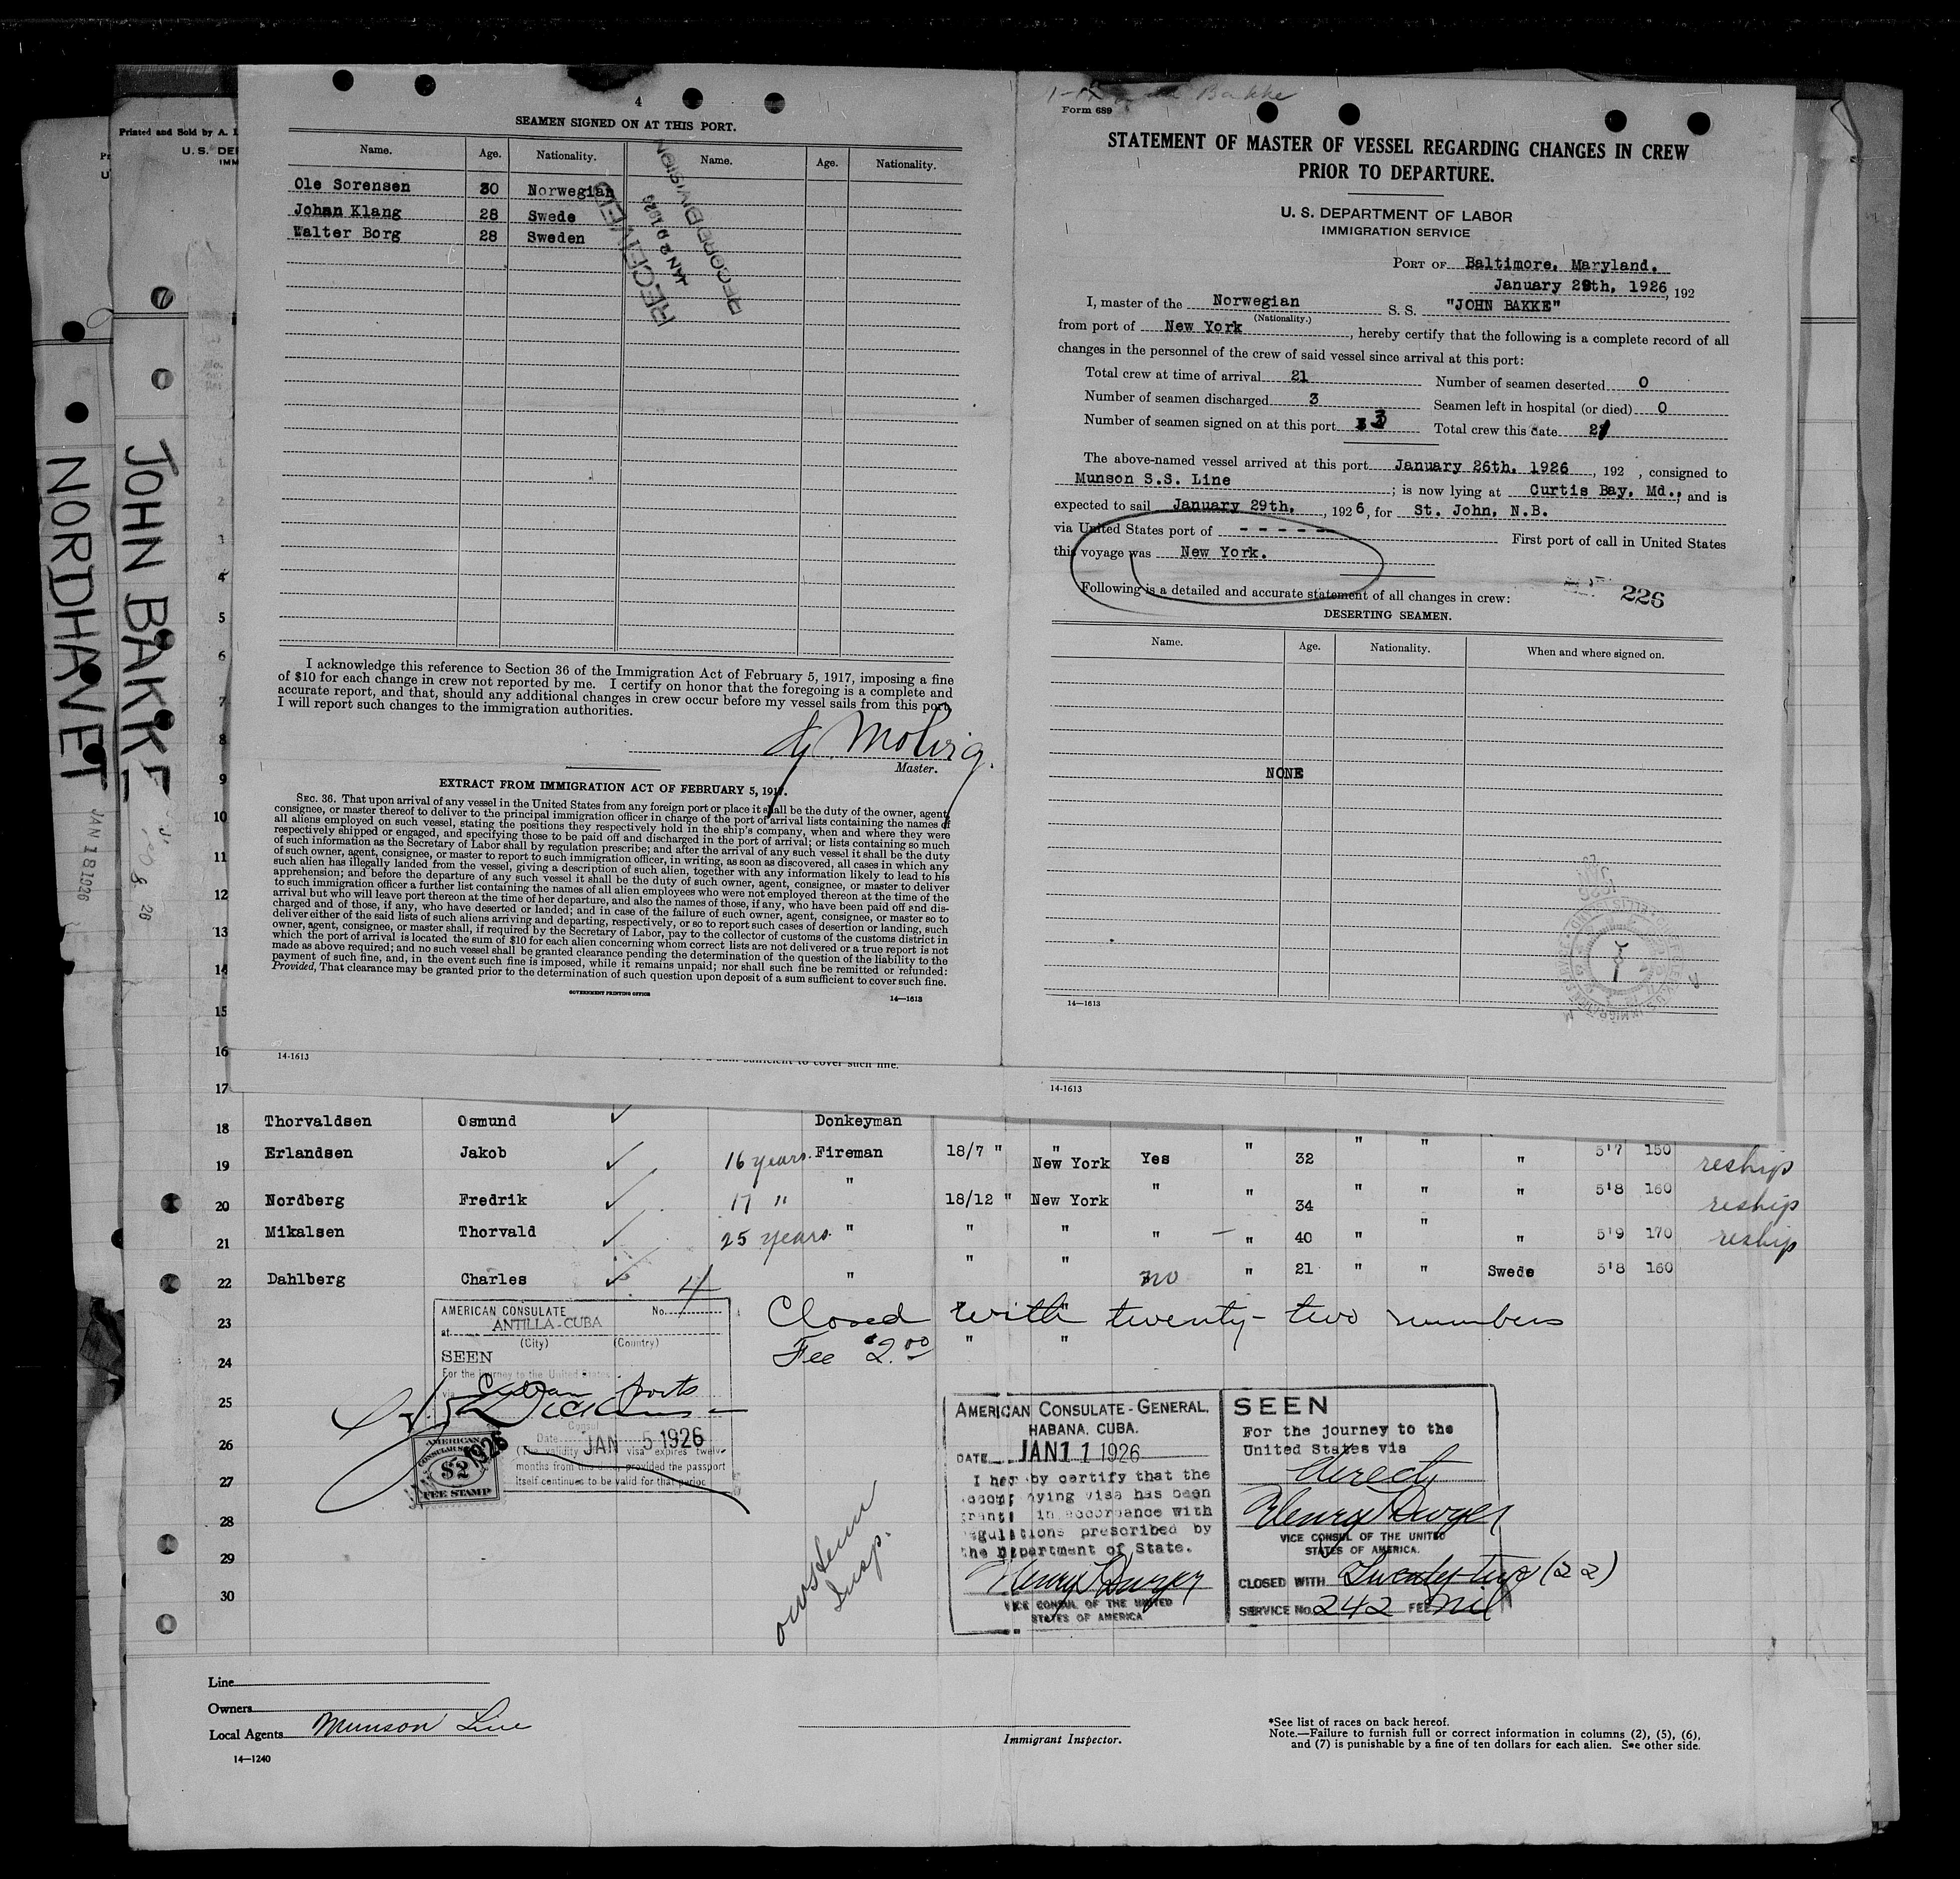 4
SEAMEN SIGNED ON AT THIS PORT.
Name. Age. Nationality. Name. Age. Nationality.
Ole Sorensen 30 Norwegian
Johan Klang 28 Swede
Walter Borg 28 Sweden
RECEIVED
JAN 1926
RECORD DIVISION
I acknowledge this reference to Section 36 of the Immigration Act of February 5, 1917, imposing a fine
of $10 for each change in crew not reported by me. I certify on honor that the foregoing is a complete and
accurate report, and that, should any additional changes in crew occur before my vessel sails from this port,
I will report such changes to the immigration authorities.
Master.
EXTRACT FROM IMMIGRATION ACT OF FEBRUARY 5, 1917.
SEC. 36. That upon arrival of any vessel in the United States from any foreign port or place it shall be the duty of the owner, agent,
consignee, or master thereof to deliver to the principal immigration officer in charge of the port of arrival lists containing the names of
all aliens employed on such vessel, stating the positions they respectively hold in the ship's company, when and where they were
respectively shipped or engaged, and specifying those to be paid off and discharged in the port of arrival; or lists containing so much
of such information as the Secretary of Labor shall by regulation prescribe; and after the arrival of any such vessel it shall be the duty
of such owner, agent, consignee, or master to report to such immigration officer, in writing, as soon as discovered, all cases in which any
such alien has illegally landed from the vessel, giving a description of such alien, together with any information likely to lead to his
apprehension; and before the departure of any such vessel it shall be the duty of such owner, agent, consignee, or master to deliver
to such immigration officer a further list containing the names of all alien employees who were not employed thereon at the time of the
arrival but who will leave port thereon at the time of her departure, and also the names of those, if any, who have been paid off and dis-
charged and of those, if any, who have deserted or landed; and in case of the failure of such owner, agent, consignee, or master so to
deliver either of the said lists of such aliens arriving and departing, respectively, or so to report such cases of desertion or landing, such
owner, agent, consignee, or master shall, if required by the Secretary of Labor, pay to the collector of customs of the customs district in
which the port of arrival is located the sum of $10 for each alien concerning whom correct lists are not delivered or a true report is not
made as above required; and no such vessel shall be granted clearance pending the determination of the question of the liability to the
payment of such fine, and, in the event such fine is imposed, while it remains unpaid; nor shall such fine be remitted or refunded:
Provided, That clearance may be granted prior to the determination of such question upon deposit of a sum sufficient to cover such fine.
GOVERNMENT PRINTING OFFICE 14—1613
14-1613 sum sufficient to cover such fine.
Bakke
Form 689
STATEMENT OF MASTER OF VESSEL REGARDING CHANGES IN CREW
PRIOR TO DEPARTURE.
U. S. DEPARTMENT OF LABOR
IMMIGRATION SERVICE
PORT OF Baltimore, Maryland.
January 28th, 1926, 192
I, master of the Norwegian S. S. "JOHN BAKKE"
(Nationality.)
from port of New York, hereby certify that the following is a complete record of all
changes in the personnel of the crew of said vessel since arrival at this port:
Total crew at time of arrival 21 Number of seamen deserted 0
Number of seamen discharged 3 Seamen left in hospital (or died) 0
Number of seamen signed on at this port 3 Total crew this date 21
The above-named vessel arrived at this port January 26th, 1926, 192 , consigned to
Munson S.S. Line ; is now lying at Curtis Bay, Md., and is
expected to sail January 29th, , 1926, for St. John, N.B.
via United States port of - - - - - First port of call in United States
this voyage was New York.
226
Following is a detailed and accurate statement of all changes in crew:
DESERTING SEAMEN.
Name. Age. Nationality. When and where signed on.
NONE
14—1613
14-1613
Printed and Sold by A.
U. S. DE
IMM
JOHN BAKKE
NORDHAVET
JAN 18 1926
4
5
6
7
8
9
10
11
12
13
14
15
16
17
18 Thorvaldsen Osmund Donkeyman
19 Erlandsen Jakob 16 years. Fireman 18/7 " " New York Yes " 32 " " " 5'7 150 reship
20 Nordberg Fredrik 17 " " 18/12 " New York " " 34 " " " 5'8 160 reship
21 Mikalsen Thorvald 25 years. " " " " — " 40 " " " 5'9 170 reship
22 Dahlberg Charles " " " no " 21 " " Swede 5'8 160
23 Closed with twenty-two numbers
24 Fee $2.00 " "
25
26
27
28
29
30
AMERICAN CONSULATE No. 4
at ANTILLA-CUBA
(City) (Country)
SEEN
For the journey to the United States
via Cuban Ports
Consul
Date JAN 5 1926
(The validity visa expires twelve
months from this date, provided the passport
itself continues to be valid for that period
AMERICAN
CONSULAR SERVICE
$2
1926
FEE STAMP
Insp.
AMERICAN CONSULATE-GENERAL,
HABANA, CUBA.
DATE JAN 11 1926
I hereby certify that the
accompanying visa has been
granted in accordance with
regulations prescribed by
the Department of State.
Henry T Dwyer
VICE CONSUL OF THE UNITED
STATES OF AMERICA
SEEN
For the journey to the
United States via
direct
Henry T Dwyer
VICE CONSUL OF THE UNITED
STATES OF AMERICA.
CLOSED WITH Twenty-two (22)
SERVICE No. 242 FEE nil
Line
Owners
Local Agents Munson Line
14—1240
Immigrant Inspector.
*See list of races on back hereof.
Note.—Failure to furnish full or correct information in columns (2), (5), (6),
and (7) is punishable by a fine of ten dollars for each alien. See other side.